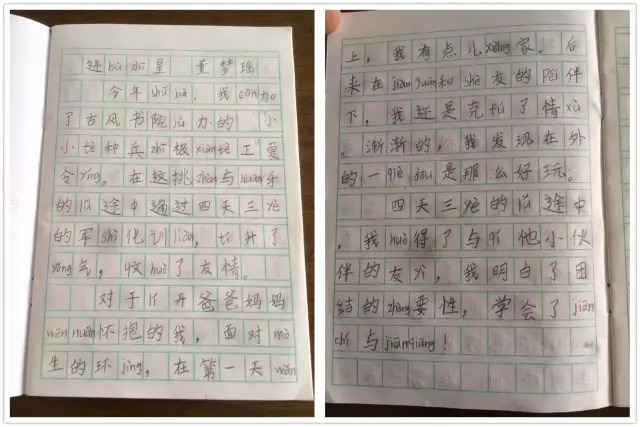 进bù zhī星 董梦瑶
今年shǔ jià，我cān加
了古风书院jǔ办的“小
小tè种兵zhī极xiàn tè工”夏
令yíng。在这挑zhàn与huān乐
的lǚ途中通过四天三yè
的军shì化训liàn，tí升了
yǒng气，收huò了友情。
对于lí开爸爸妈妈
wēn nuǎn怀抱的我，面对mò
生的环jìng，在第一天wǎn
上，我有点儿xiǎng家。后
来在jiào guān和shè友的péi伴
下，我还是克fú了情xù
。渐渐的，我发现在外
的一qiè dōu是那么好玩。
四天三yè的lǚ途中
，我huò得了与qí他小伙
伴的友yì，我明白了团
结的zhòng要性，学会了jiān
chí与jiān qiáng！